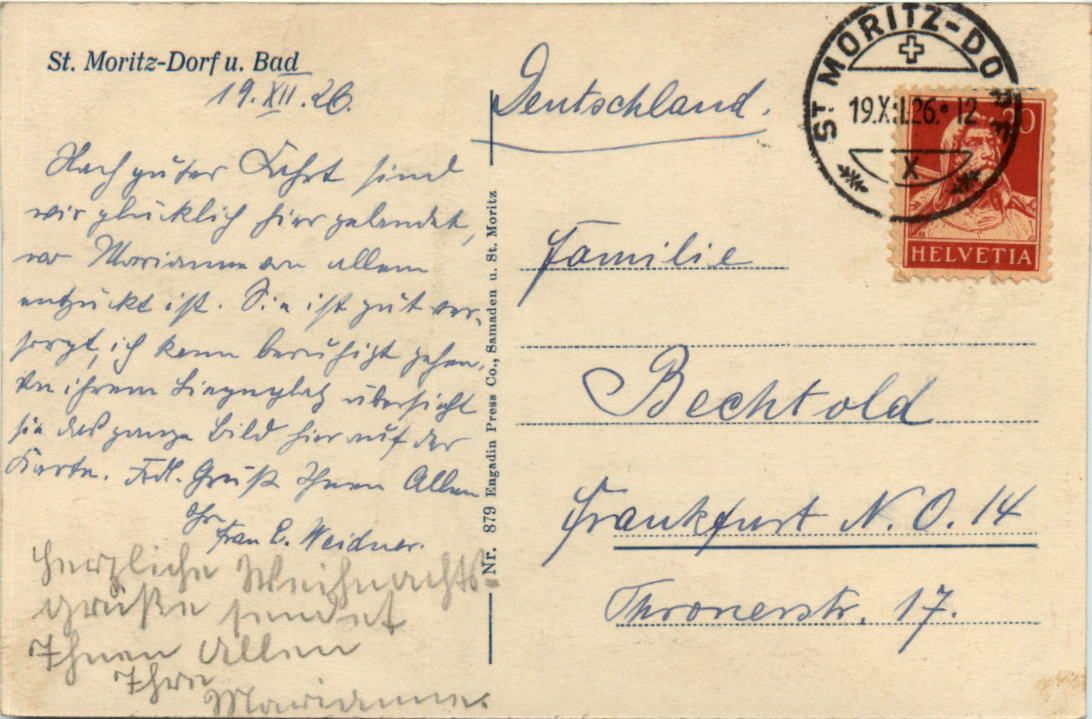 St. Moritz-Dorf u. Bad
19. XII. 26.
Nach guter Fahrt sind
wir glücklich hier gelandet,
wo Marianne von allem
entzückt ist. Sie ist gut ver-
sorgt, ich kann beruhigt gehen.
Von ihrem Liegeplatz übersieht
sie das ganze Bild hier auf der
Karte. Frdl. Gruß Ihnen Allen
Ihr
Frau E. Weidner.
Herzliche Weihnachts=
grüße sendet
Ihnen Allen
Ihre
Marianne
Nr. 879 Engadin Press Co., Samaden u. St. Moritz
Deutschland.
ST. MORITZ-DORF
19.XII.26.• 12
X
20
HELVETIA
Familie
Bechtold
Frankfurt N. O. 14
Thronerstr. 17.